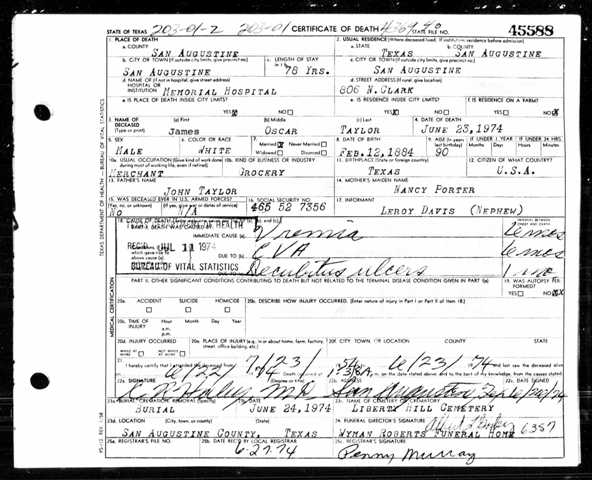 STATE OF TEXAS 203-01-2 203-01 CERTIFICATE OF DEATH STATE FILE NO. 45588
1. PLACE OF DEATH 2. USUAL RESIDENCE (Where deceased lived. If institution: residence before admission)
a. COUNTY a. STATE b. COUNTY
SAN AUGUSTINE TEXAS SAN AUGUSTINE
b. CITY OR TOWN (If outside city limits, give precinct no.) c. LENGTH OF STAY c. CITY OR TOWN (If outside city limits, give precinct no.)
SAN AUGUSTINE 78 YRS. SAN AUGUSTINE
d. NAME OF (If not in hospital, give street address) d. STREET ADDRESS (If rural, give location)
HOSPITAL OR INSTITUTION MEMORIAL HOSPITAL 806 N.CLARK
e. IS PLACE OF DEATH INSIDE CITY LIMITS? e. IS RESIDENCE INSIDE CITY LIMITS? f. IS RESIDENCE ON A FARM?
YES NO YES NO YES NO
3. NAME OF DECEASED (a) First (b) Middle (c) Last 4. DATE OF DEATH
(Type or print) James OSCAR TAYLOR JUNE 23,1974
5. SEX 6. COLOR OR RACE 7. Married Never Married 8. DATE OF BIRTH 9. AGE IF UNDER 1 YEAR IF UNDER 24 HRS.
Widowed Divorced Months Days Hours Minutes
MALE WHITE FEB.12,1884 90
10a. USUAL OCCUPATION (Give kind of work done during most of working life, even if retired) 10b. KIND OF BUSINESS OR INDUSTRY 11. BIRTHPLACE (State or foreign country) 12. CITIZEN OF WHAT COUNTRY?
MERCHANT GROCERY TEXAS U.S.A.
13. FATHER'S NAME 14. MOTHER'S MAIDEN NAME
JOHN TAYLOR NANCY PORTER
15. WAS DECEASED EVER IN U.S. ARMED FORCES? 16. SOCIAL SECURITY NO. 17. INFORMANT
(Yes, no, or unknown) (If yes, give war or dates of service)
NO N/A 465 52 7356 LEROY DAVIS (NEPHEW)
18. CAUSE OF DEATH
PART I. DEATH WAS CAUSED BY:
IMMEDIATE CAUSE (a) Uremia
REC'D JUL 11 1974
DUE TO (b) CVA
BUREAU OF VITAL STATISTICS Decubitus ulcers 1 mo
PART II. OTHER SIGNIFICANT CONDITIONS CONTRIBUTING TO DEATH BUT NOT RELATED TO THE TERMINAL DISEASE CONDITION GIVEN IN PART I(a) 19. WAS AUTOPSY PERFORMED?
YES NO
20a. ACCIDENT SUICIDE HOMICIDE 20b. DESCRIBE HOW INJURY OCCURRED. (Enter nature of injury in Part I or Part II of item 18.)
20c. TIME OF INJURY Hour Month Day Year
a.m.
p.m.
20d. INJURY OCCURRED 20e. PLACE OF INJURY (e.g. in or about home, farm, factory, street, office building, etc.) 20f. CITY, TOWN, OR LOCATION COUNTY STATE
WHILE AT WORK NOT WHILE AT WORK
21. I hereby certify that I attended the deceased from 6/23/ 74
22a. SIGNATURE (Degree or title) 22b. ADDRESS 22c. DATE SIGNED
San Augustine
23a. BURIAL, CREMATION, REMOVAL (Specify) 23b. DATE 23c. NAME OF CEMETERY OR CREMATORY
BURIAL JUNE 24,1974 LIBERTY HILL CEMETERY
23d. LOCATION (City, town, or county) (State) 24. FUNERAL DIRECTOR'S SIGNATURE 6387
SAN AUGUSTINE COUNTY, TEXAS WYMAN ROBERTS FUNERAL HOME
25a. REGISTRAR'S FILE NO. 25b. DATE REC'D BY LOCAL REGISTRAR 25c. REGISTRAR'S SIGNATURE
6-27-74 Penny Murray
TEXAS DEPARTMENT OF HEALTH - BUREAU OF VITAL STATISTICS
MEDICAL CERTIFICATION